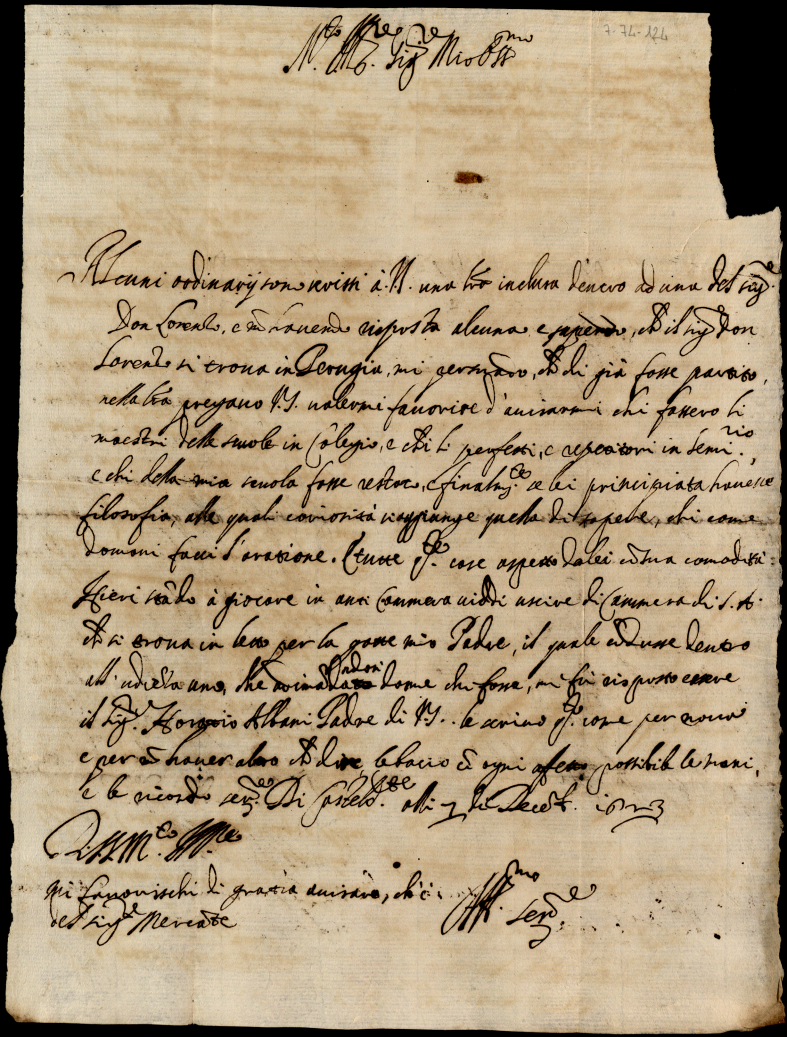 7-74-124
M.to Ill.re Sig.re Mio Oss.mo
Alcuni ordinarij sono scrissi à V.S. una lra inclusa dentro ad una del sig.re
Don Lorenzo, e nõ havendo risposta alcuna e sapendo, ch il sig.re Don
Lorenzo si trova in Perugia, mi , ch di già fosse partito,
nella lra pregavo V.S. volermi favorire d'avisarmi chi fossero li
maestri delle scuole in Colegio, e chi li perfetti, e repetitori in Semi.rio,
e chi della mia scuola fosse restato, e finalm.te se lei principiata havesse
filosofia, alle quali curiosità raggiunge quella di sapere, chi come
domani facci l'oratione. E tutte q.e cose aspetto da lei cõ sua comodità.
Hieri stãdo à giocare in anti Cammera viddi uscire di Cammera di S.A.
ch si trova in letto per la gotta mio Padre, il quale cõdusse dentro
all'udiẽza uno, che adimãdandoli dome chi fosse, mi fù risposto essere
il Sig.re Horatio Albani Padre di V.S.. le scrivo q.e cose per nova
e per nõ haver altro ch dire le bacio cõ ogni afetto possibile le mani,
e le ricordo ser.re Di Casteld.te alli 7 di Decẽb. 1623
Di V.S. M.to Ill.re
mi favorischi di gratia avisare, ch è
del sig.re Mercate
Aff.mo ser.re